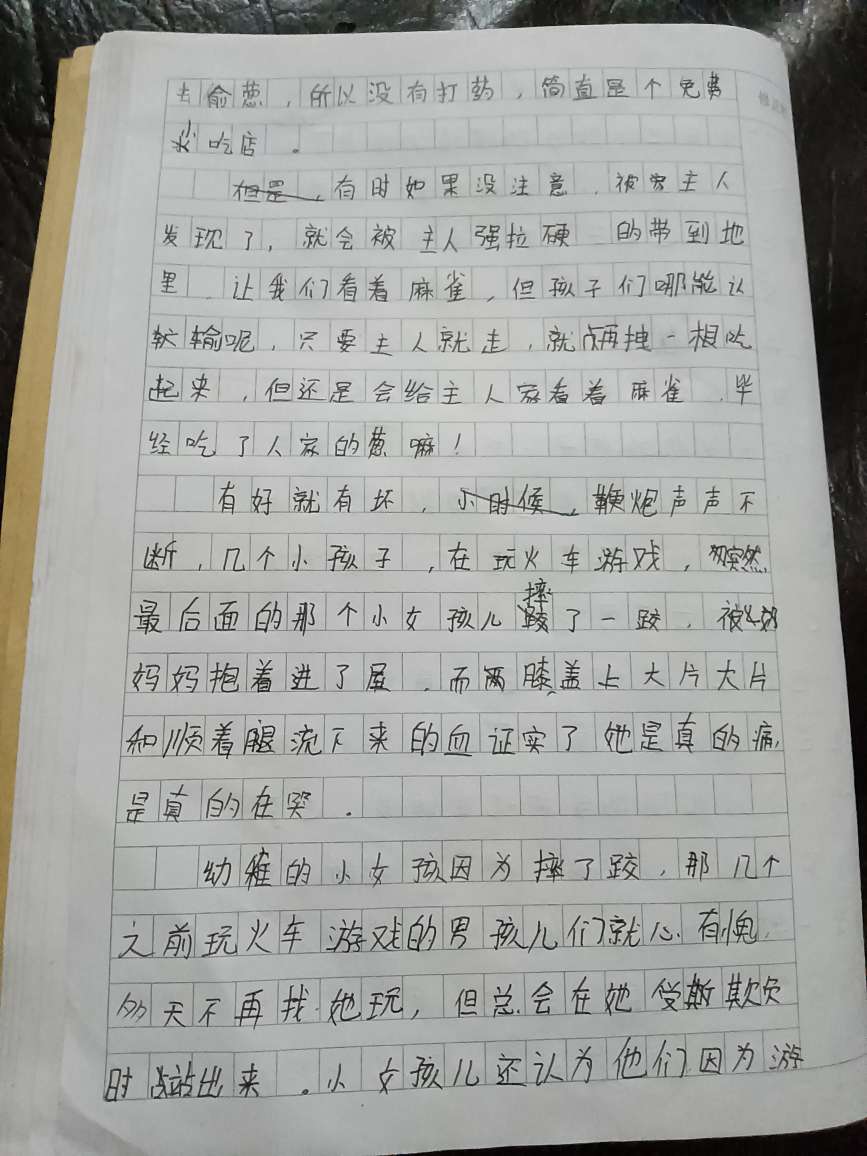 去偷葱，所以没有打药，简直是个免费
小吃店。
但是，有时如果没注意，被主人
发现了，就会被主人强拉硬 的带到地
里，让我们看着麻雀，但孩子们哪能认
输呢，只要主人就走，就再拽一根吃
起来，但还是会给主人家看着麻雀，毕
经吃了人家的葱嘛！
有好就有坏，小时候，鞭炮声声不
断，几个小孩子，在玩火车游戏，突然，
最后面的那个小女孩儿摔了一跤，被
妈妈抱着进了屋，而两膝盖上大片大片
和顺着腿流下来的血证实了她是真的痛，
是真的在哭。
幼稚的小女孩因为摔了跤，那几个
之前玩火车游戏的男孩儿们就心有愧，
多天不再找她玩，但总会在她受欺负
时站出来。小女孩儿还认为他们因为游